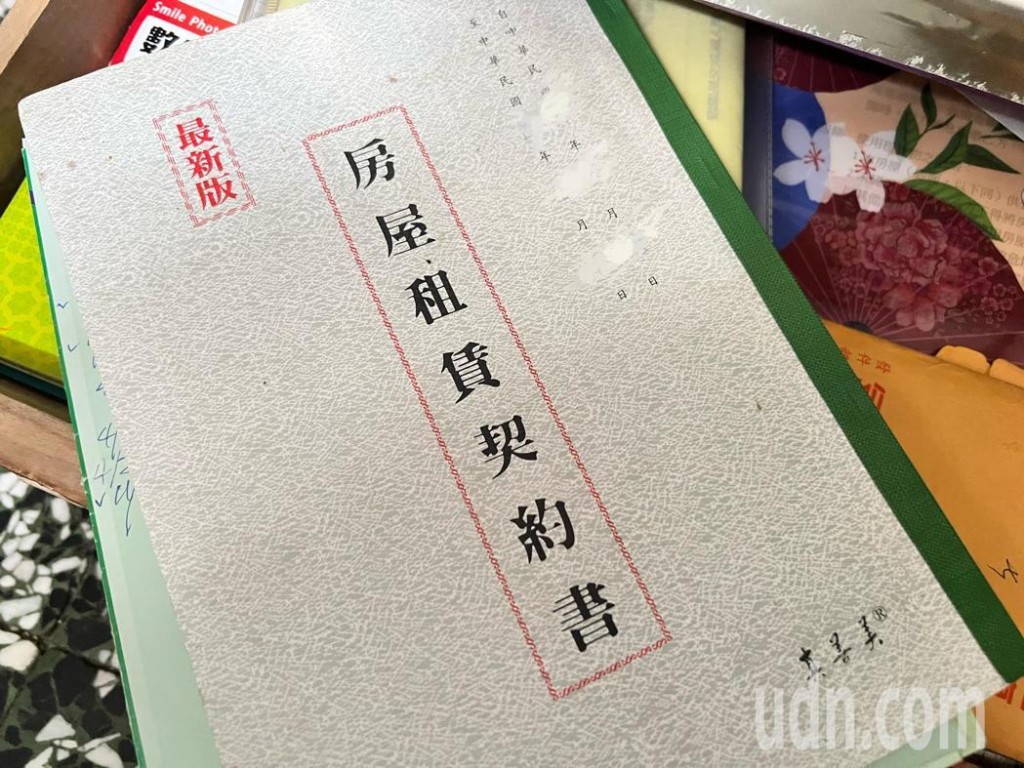 Smile Photo
數
最新版
房屋租賃契約書
自中華民國
年
月
日
至中華民國
年
月
日
真善美®
udn.com